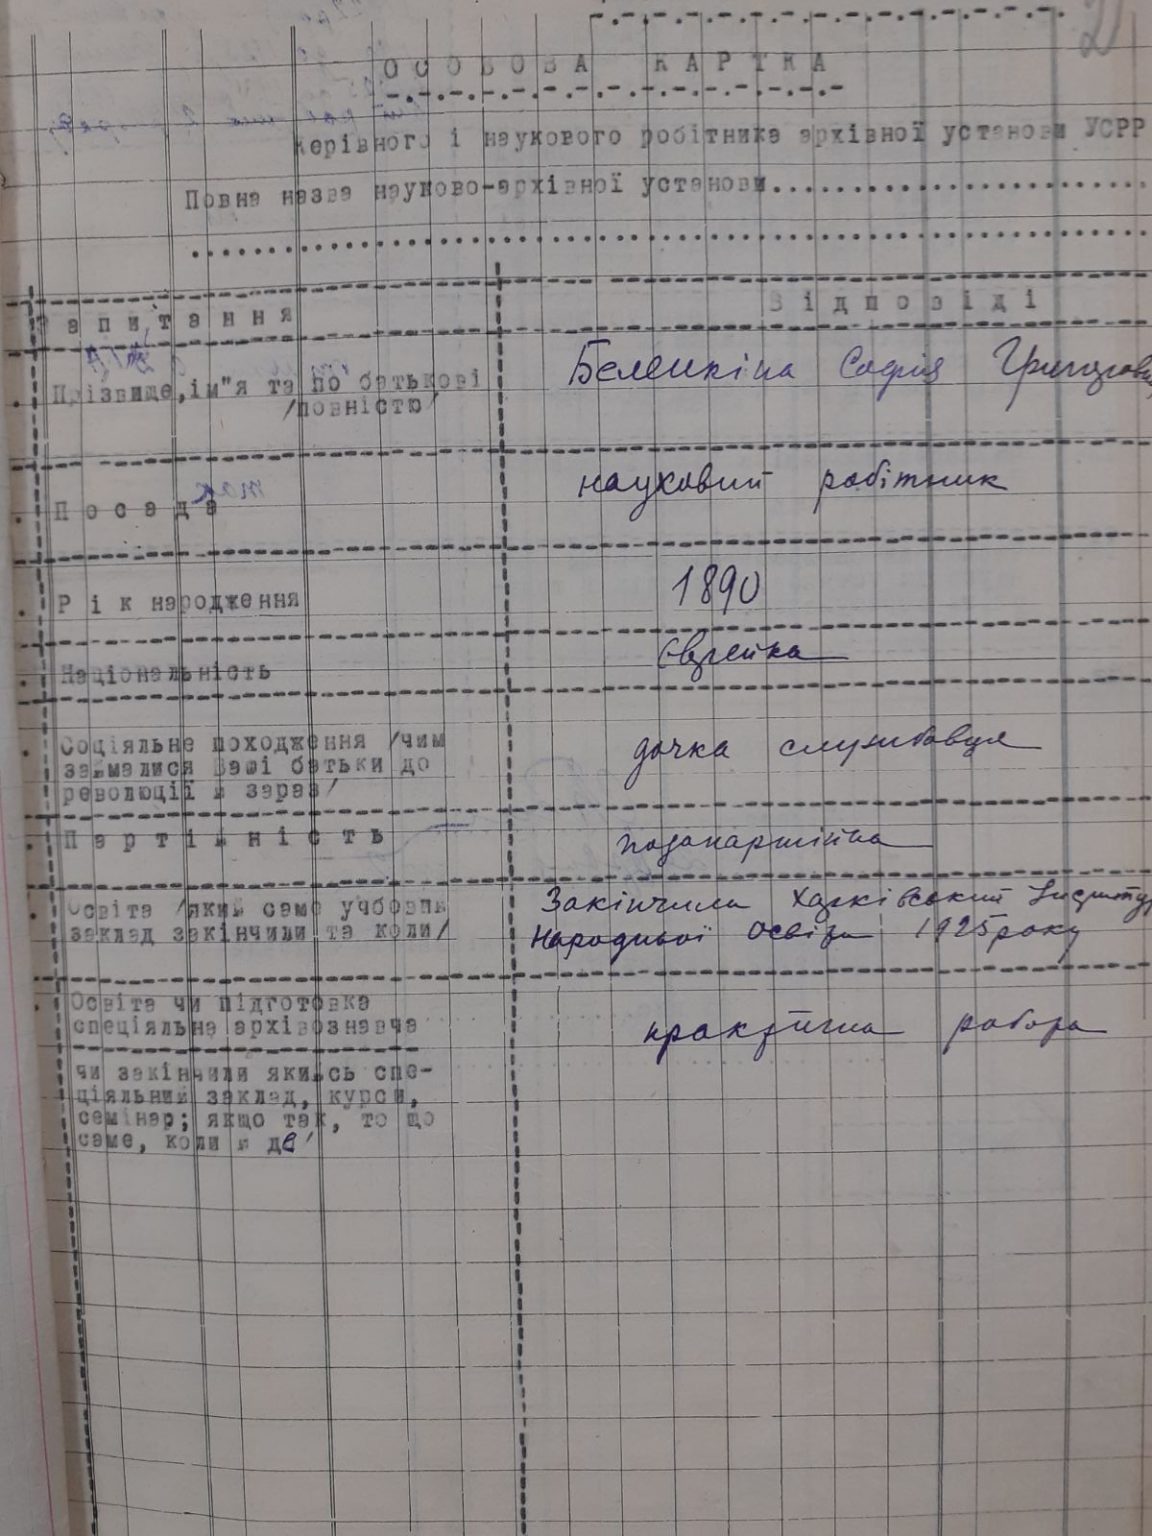 ОСОБОВА КАРТКА
керівного і наукового робітника архівної установи УСРР
Повна назва науково-архівної установи..............................
..............................
Запитання
Відповіді
Прізвище, ім"я та по батькові
/повністю/
Софія
Посада
науковий робітник
Рік народження
1890
Національність
Єврейка
Соціяльне походження /чим
займалися Ваші батьки до
революції й зараз/
дочка службовця
Партійність
позапартійна
Освіта /який саме учбовий
заклад закінчили та коли/
Закінчила Харківський Інститут
Народньої Освіти 1925 року
Освіта чи підготовка
спеціяльна архівознавча
практична робота
чи закінчили якийсь спе-
ціяльний заклад, курси,
семінар; якщо так, то що
саме, коли й де/